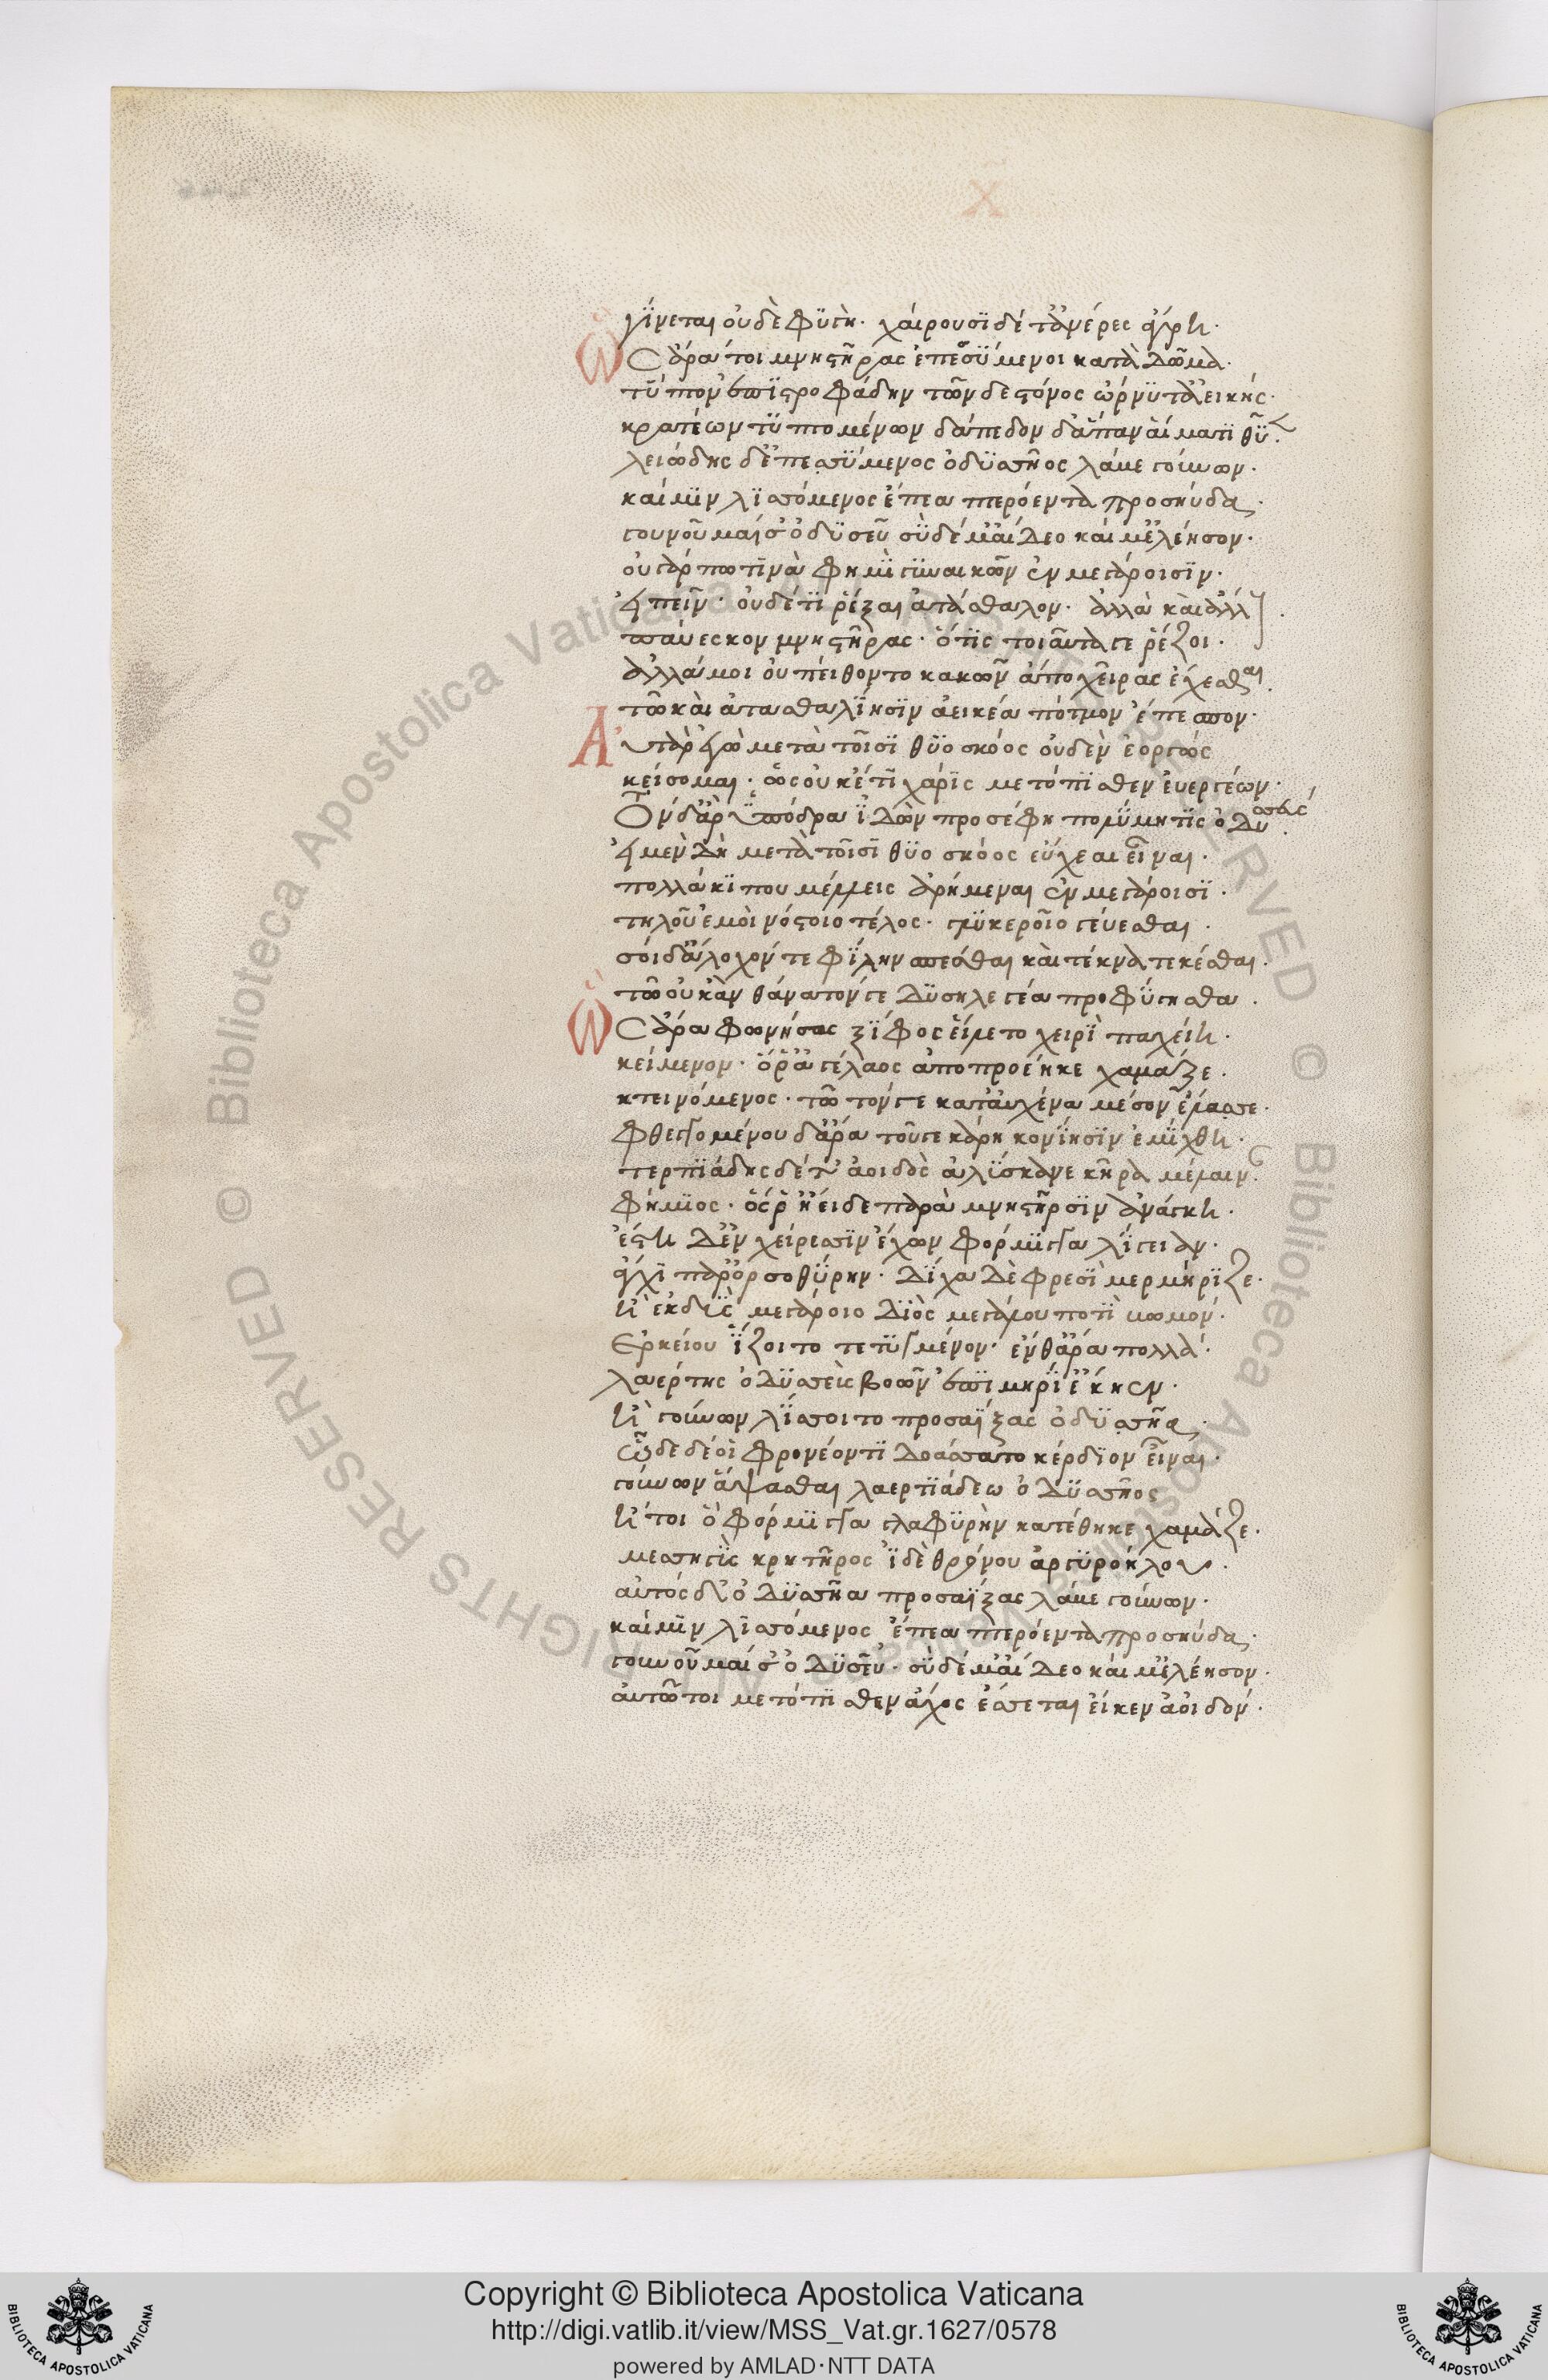 χ
γίνεται οὐδὲ φϋγὴ· χαίρουσϊ δέ τ' ἀνέρες ἄγρῃ·
Ὣς ἄρα τοι μνηστῆρας ἐπεσσΰμενοι κατὰ δῶμα·
τύπτον ἐπϊστροφάδην τῶν δε στόνος ὤρνϋτ' ἀεικής·
κράτέων τϋπτομένων δάπεδον δ' ἅπαν αἵματϊ θῦ·
λειώδης δ' ἐπεσσΰμενος ὀδϋσσῆος λάβε γούνων·
καί μϊν λϊσσόμενος ἔπεα πτερόεντα προσηύδα·
γουνοῦμαί σ' ὀδϋσεῦ σὺ δέ μ' αἴδεο καί μ' ἐλέησον·
οὐ γάρ πώ τϊνά φημϊ γϋναικῶν ἐν μεγάροισϊν·
εἰπεῖν· οὐδέ τϊ ῥέξαι ἀτάσθαλον· ἀλλὰ καὶ ἄλλους·
παύεσκον μνηστῆρας· ὅτϊς τοιαῦτά γε ῥέζοι·
ἀλλά μοι οὐ πείθοντο κακῶν ἄπο χεῖρας ἔχεσθαι·
τῶ καὶ ἀτασθαλίῃσϊν ἀεικέα πότμον ἐπέσπον·
Αὐτὰρ ἐγὼ μετὰ τοῖσϊ θϋοσκόος οὐδὲν ἐοργὼς
κείσομαι· ὡς οὐκ ἔτϊ χάρϊς μετόπϊσθεν εὐεργέων·
Τὸν δ' ἄρ' ὑπόδρα ἰδὼν προσέφη πολΰμητϊς ὀδυσσεύς·
εἰ μὲν δὴ μετὰ τοῖσϊ θϋοσκόος εὔχεαι εἶναι·
πολλάκϊ που μέλλεις ἀρήμεναι ἐν μεγάροισϊ·
τηλοῦ ἐμοὶ νόστοιο τέλος· γλϋκεροῖο γενέσθαι·
σοὶ δ' ἄλοχόν τε φίλην σπέσθαι καὶ τέκνα τεκέσθαι·
τῶ οὐκ ἂν θάνατόν γε δϋσηλεγέα προφϋγησθα·
Ὣς ἄρα φωνήσας ξίφος εἵλετο χειρϊ παχείῃ·
κείμενον· ὅ ῥ' ἀγέλαος ἀποπροέηκε χαμάζε·
κτεινόμενος· τῶ τόν γε κατ' αὐχένα μέσον ἔλασσε·
φθεγγομένου δ' ἄρα τοῦγε κάρη κονίῃσϊν ἐμίχθη·
τερπϊάδης δέ τ' ἀοιδὸς ἀλύσκανε κῆρα μέλαιναν·
φήμϊος· ὅς ῥ' ἤειδε παρὰ μνηστῆρσϊν ἀνάγκῃ·
ἔστη δ' ἐν χείρεσσϊν ἔχων φόρμϊγγα λίγειαν·
ἄγχϊ παρ' ὀρσοθΰρην· δίχα δὲ φρεσϊ μερμήρϊζε·
ἢ ἐκδὺς μεγάροιο δϊὸς μεγάλου ποτϊ βωμόν·
ἑρκείου ἵζοιτο τετϋγμένον· ἔνθ' ἄρα πολλά·
λαέρτης ὀδϋσσεύς τε βοῶν ἐπϊ μηρί' ἔκηεν·
ἢ γούνων λίσσοιτο προσαΐξας ὀδϋσσῆα·
ὧδε δέ οἱ φρονέοντϊ δοάσσατο κέρδϊον εἶναι·
γούνων ἅψασθαι λαερτϊάδεω ὀδϋσσῆος
ἤτοι ὃ φόρμϊγγα γλαφϋρὴν κατέθηκε χαμᾶζε·
μεσσηγὺς κρητῆρος ἰδὲ θρόνου ἀργϋροήλου·
αὐτὸς δ' ὀδϋσσῆα προσαΐξας λάβε γούνων·
καί μϊν λϊσσόμενος ἔπεα πτερόεντα προσηύδα·
γουνοῦμαί σ' ὀδϋσεῦ· σὺ δέ μ' αἴδεο καί μ' ἐλέησον·
αὐτῶ τοι μετόπϊσθεν ἄχος ἔσσεται εἴκεν ἀοιδόν·
Copyright © Biblioteca Apostolica Vaticana
http://digi.vatlib.it/view/MSS_Vat.gr.1627/0578
powered by AMLAD·NTT DATA